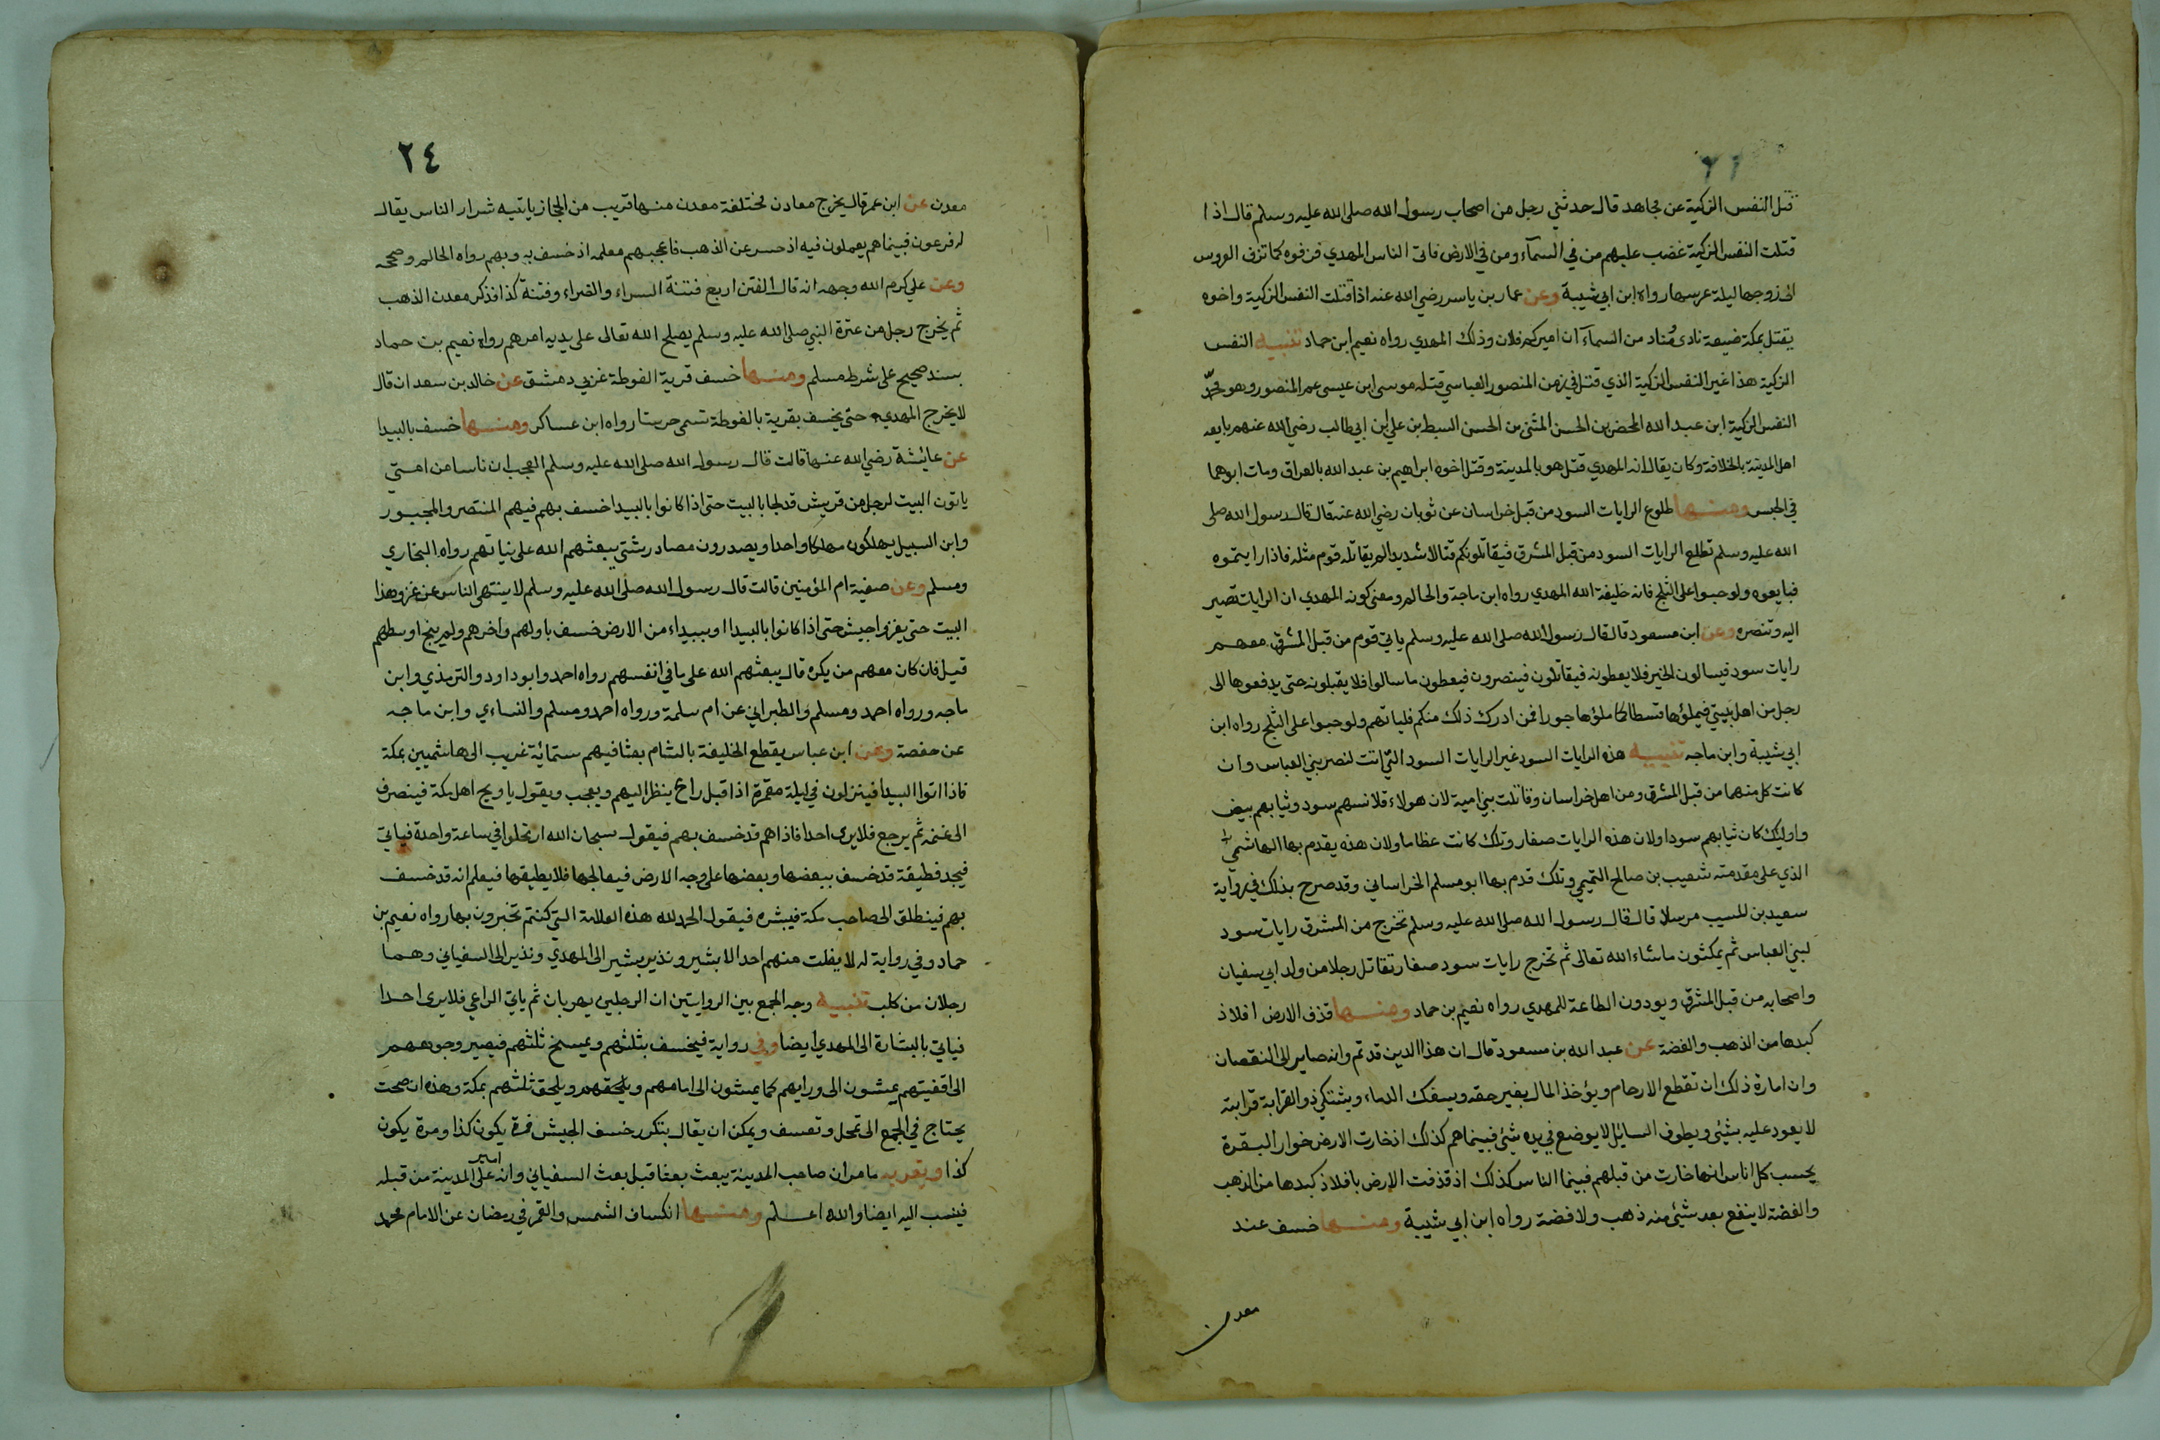 قتل النفس الزكية عن مجاهد قال حدثني رجل من اصحاب رسول الله صلى الله عليه وسلم قال اذا
قتلت النفس الزكية غضب عليهم من في السمآء ومن في الارض فاتى الناس المهدي فزفوه كما تزف العروس
الى زوجها ليلة عرسها رواه ابن ابي شيبة وعن عمار بن ياسر رضي الله عنه اذا قتلت النفس الزكية واخوه
يقتل بمكة ضيعة نادى مناد من السمآء ان اميركم فلان وذلك المهدي رواه نعيم ابن حماد تنبيه النفس
الزكية هذا غير النفس الزكية الذي قتل في زمن المنصور العباسي قتله موسى ابن عيسى عم المنصور وهو محمد
النفس الزكية ابن عبد الله المحض بن الحسن المثنى بن الحسن السبط بن علي ابن ابي طالب رضي الله عنهم بايعه
اهل المدينة بالخلافة وكان يقال انه المهدي قتل هو بالمدينة وقتل اخوه ابراهيم بن عبد الله بالعراق ومات ابوهما
في الحبس ومنها طلوع الرايات السود من قبل خراسان عن ثوبان رضي الله عنه قال قال رسول الله صلى
الله عليه وسلم تطلع الرايات السود من قبل المشرق فيقاتلونكم قتالا شديدا لم يقاتله قوم مثله فاذا رايتموه
فبايعوه ولو حبوا على الثلج فانه خليفة الله المهدي رواه ابن ماجة والحاكم ومعنى كونه المهدي ان الرايات تصير
اليه وتنصره وعن ابن مسعود قال قال رسول الله صلى الله عليه وسلم ياتي قوم من قبل المشرق معهم
رايات سود فيسالون الخير فلا يعطونه فيقاتلون فينصرون فيعطون ما سالوا فلا يقبلونه حتى يدفعوها الى
رجل من اهل بيتي فيملؤها قسطا كما ملؤها جورا فمن ادرك ذلك منكم فلياتهم ولو حبوا على الثلج رواه ابن
ابي شيبة وابن ماجه تنبيه هذه الرايات السود غير الرايات السود التي اتت لنصر بني العباس وان
كانت كل منهما من قبل المشرق ومن اهل خراسان وقاتلت بني امية لان هولاء قلانسهم سود وثيابهم بيض
واوليك كان ثيابهم سودا ولان هذه الرايات صغار وتلك كانت عظاما ولان هذه يقدم بها الهاشمي
الذي على مقدمته شعيب بن صالح التميمي وتلك قدم بها ابو مسلم الخراساني وقد صرح بذلك في رواية
سعيد بن المسيب مرسلا قال قال رسول الله صلى الله عليه وسلم تخرج من المشرق رايات سود
لبني العباس ثم يمكثون ما شاء الله تعالى ثم تخرج رايات سود صغار تقاتل رجلا من ولد ابي سفيان
واصحابه من قبل المشرق ويودون الطاعة للمهدي رواه نعيم بن حماد ومنها قذف الارض افلاذ
كبدها من الذهب والفضة عن عبد الله بن مسعود قال ان هذا الدين قد تم وانه صاير الى النقصان
وان امارة ذلك ان تقطع الارحام ويؤخذ المال بغير حقه ويسفك الدماء ويشتكي ذو القرابة قرابته
لا يعود عليه بشئ ويطوف السايل لا يوضع في يده شئ فبينما هم كذلك اذ خارت الارض خوار البقرة
يحسب كل اناس انها خارت من قبلهم فبينما الناس كذلك اذ قذفت الارض بافلاذ كبدها من الذهب
والفضة لا ينفع بعد شئ منه ذهب ولا فضة رواه ابن ابي شيبة ومنها خسف عند
معدن
٢٤
معدن عن ابن عمر قال يخرج معادن مختلفة معدن منها قريب من الحجاز ياتيه شرار الناس يقال
له فرعون فبينما هم يعملون فيه اذ حسر عن الذهب فاعجبهم معلمه اذ خسف به وبهم رواه الحاكم وصححه
وعن علي كرم الله وجهه انه قال الفتن اربع فتنة السراء والضراء وفتنة كذا فذكر معدن الذهب
ثم يخرج رجل من عترة النبي صلى الله عليه وسلم يصلح الله تعالى على يديه امرهم رواه نعيم بن حماد
بسند صحيح على شرط مسلم ومنها خسف قرية الغوطة غربي دمشق عن خالد بن سعد ان قال
لا يخرج المهدي حتى يخسف بقرية بالغوطة تسمى حرستا رواه ابن عساكر ومنها خسف بالبيدا
عن عايشة رضي الله عنها قالت قال رسول الله صلى الله عليه وسلم العجب ان ناسا من امتي
ياتون البيت لرجل من قريش قد لجا بالبيت حتى اذا كانوا بالبيدا خسف بهم فيهم المنتصر والمجبور
وابن السبيل يهلكون مهلكا واحدا ويصدرون مصادر شتى يبعثهم الله على نياتهم رواه البخاري
ومسلم وعن صفية ام المؤمنين قالت قال رسول الله صلى الله عليه وسلم لا ينتهي الناس عن غزو هذا
البيت حتى يغزوا جيش حتى اذا كانوا بالبيدا او ببيداء من الارض خسف باولهم واخرهم ولم ينج اوسطهم
قيل فان كان معهم من يكره قال يبعثهم الله على ما في انفسهم رواه احمد وابو داود والترمذي وابن
ماجه ورواه احمد ومسلم والطبراني عن ام سلمة ورواه احمد ومسلم والنساءي وابن ماجه
عن حفصة وعن ابن عباس يقطع الخليفة بالشام بعثا فيهم ستماية غريب الى هاشميين بمكة
فاذا اتوا البيدا فينزلون في ليلة مقمرة اذا قبل راع ينظر اليهم ويعجب ويقول يا ويح اهل مكة فينصرف
الى غنمه ثم يرجع فلا يرى احدا فاذا هم قد خسف بهم فيقول سبحان الله ارتحلوا في ساعة واحدة فياتي
فيجد قطيفة قد خسف ببعضها وبعضها على وجه الارض فيعالجها فلا يطيقها فيعلم انه قد خسف
بهم فينطلق الى صاحب مكة فيبشره فيقول الحمد لله هذه العلامة التي كنتم تخبرون بها رواه نعيم بن
حماد وفي رواية له لا يفلت منهم احد الا بشير ونذير بشير الى المهدي ونذير الى السفياني وهما
رجلان من كلب تنبيه وجه الجمع بين الروايتين ان الرجلين يهربان ثم ياتي الراعي فلا يرى احدا
فياتي بالبشارة الى المهدي ايضا وفي رواية فيخسف بثلثهم ويمسخ ثلثهم فيصير وجوههم
الى اقفيتهم يمشون الى ورايهم كما يمشون الى امامهم ويلحق ثلثهم بمكة وهذه ان صحت
يحتاج في الجمع الى تمحل وتعسف ويمكن ان يقال بتكرر خسف الجيش فمرة يكون كذا ومرة يكون
كذا ويقربه ما مر ان صاحب المدينة يبعث بعثا قبل بعث السفياني وانه امير على المدينة من قبله
فينسب اليه ايضا والله اعلم ومنها انكساف الشمس والقمر في رمضان عن الامام محمد